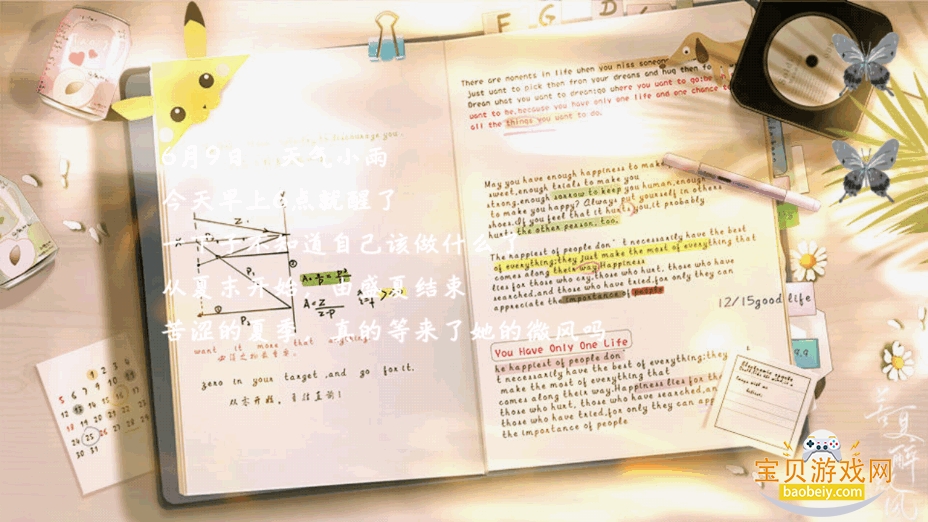 F G D
There are moments in life when you miss someone
just want to pick them from your dreams and hug them fo
Dream what you want to dream;go where you want to go;be
want to be,because you have only one life and one chance to
all the things you want to do.
6月9日 天气小雨
今天早上6点就醒了
一下子不知道自己该做什么了
从夏末开始，由盛夏结束
苦涩的夏季，真的等来了她的微风吗
May you have enough happiness to make
sweet,enough trials to make you
strong,enough sorrow to keep you human,enough
to make you happy? Always put yourself in others'
shoes.If you feel that it hurts you,it probably
the other person, too.
The happiest of people don't necessarily have the best
of everything;they just make the most of everything that
comes along their way.Happiness
lies for those who cry,those who hurt, those who have
searched,and those who have tried,for only they can
appreciate the importance of people
12/15good life
want it more that
zero in your target ,and go for it.
从零开始，勇往直前！
You Have Only One Life
he happiest of people don'
t necessarily have the best of everything;they
make the most of everything that
comes along their way.Happiness lies for th
those who hurt, those who have searched,an
those who have tried,for only they can app
the importance of people
苦夏解风
宝贝游戏网
baobeiy.com